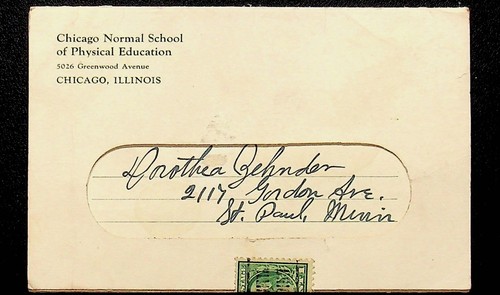 Chicago Normal School
of Physical Education
5026 Greenwood Avenue
CHICAGO, ILLINOIS
Dorothea Zehnder
2117 Gordon Ave.
St. Paul, Minn